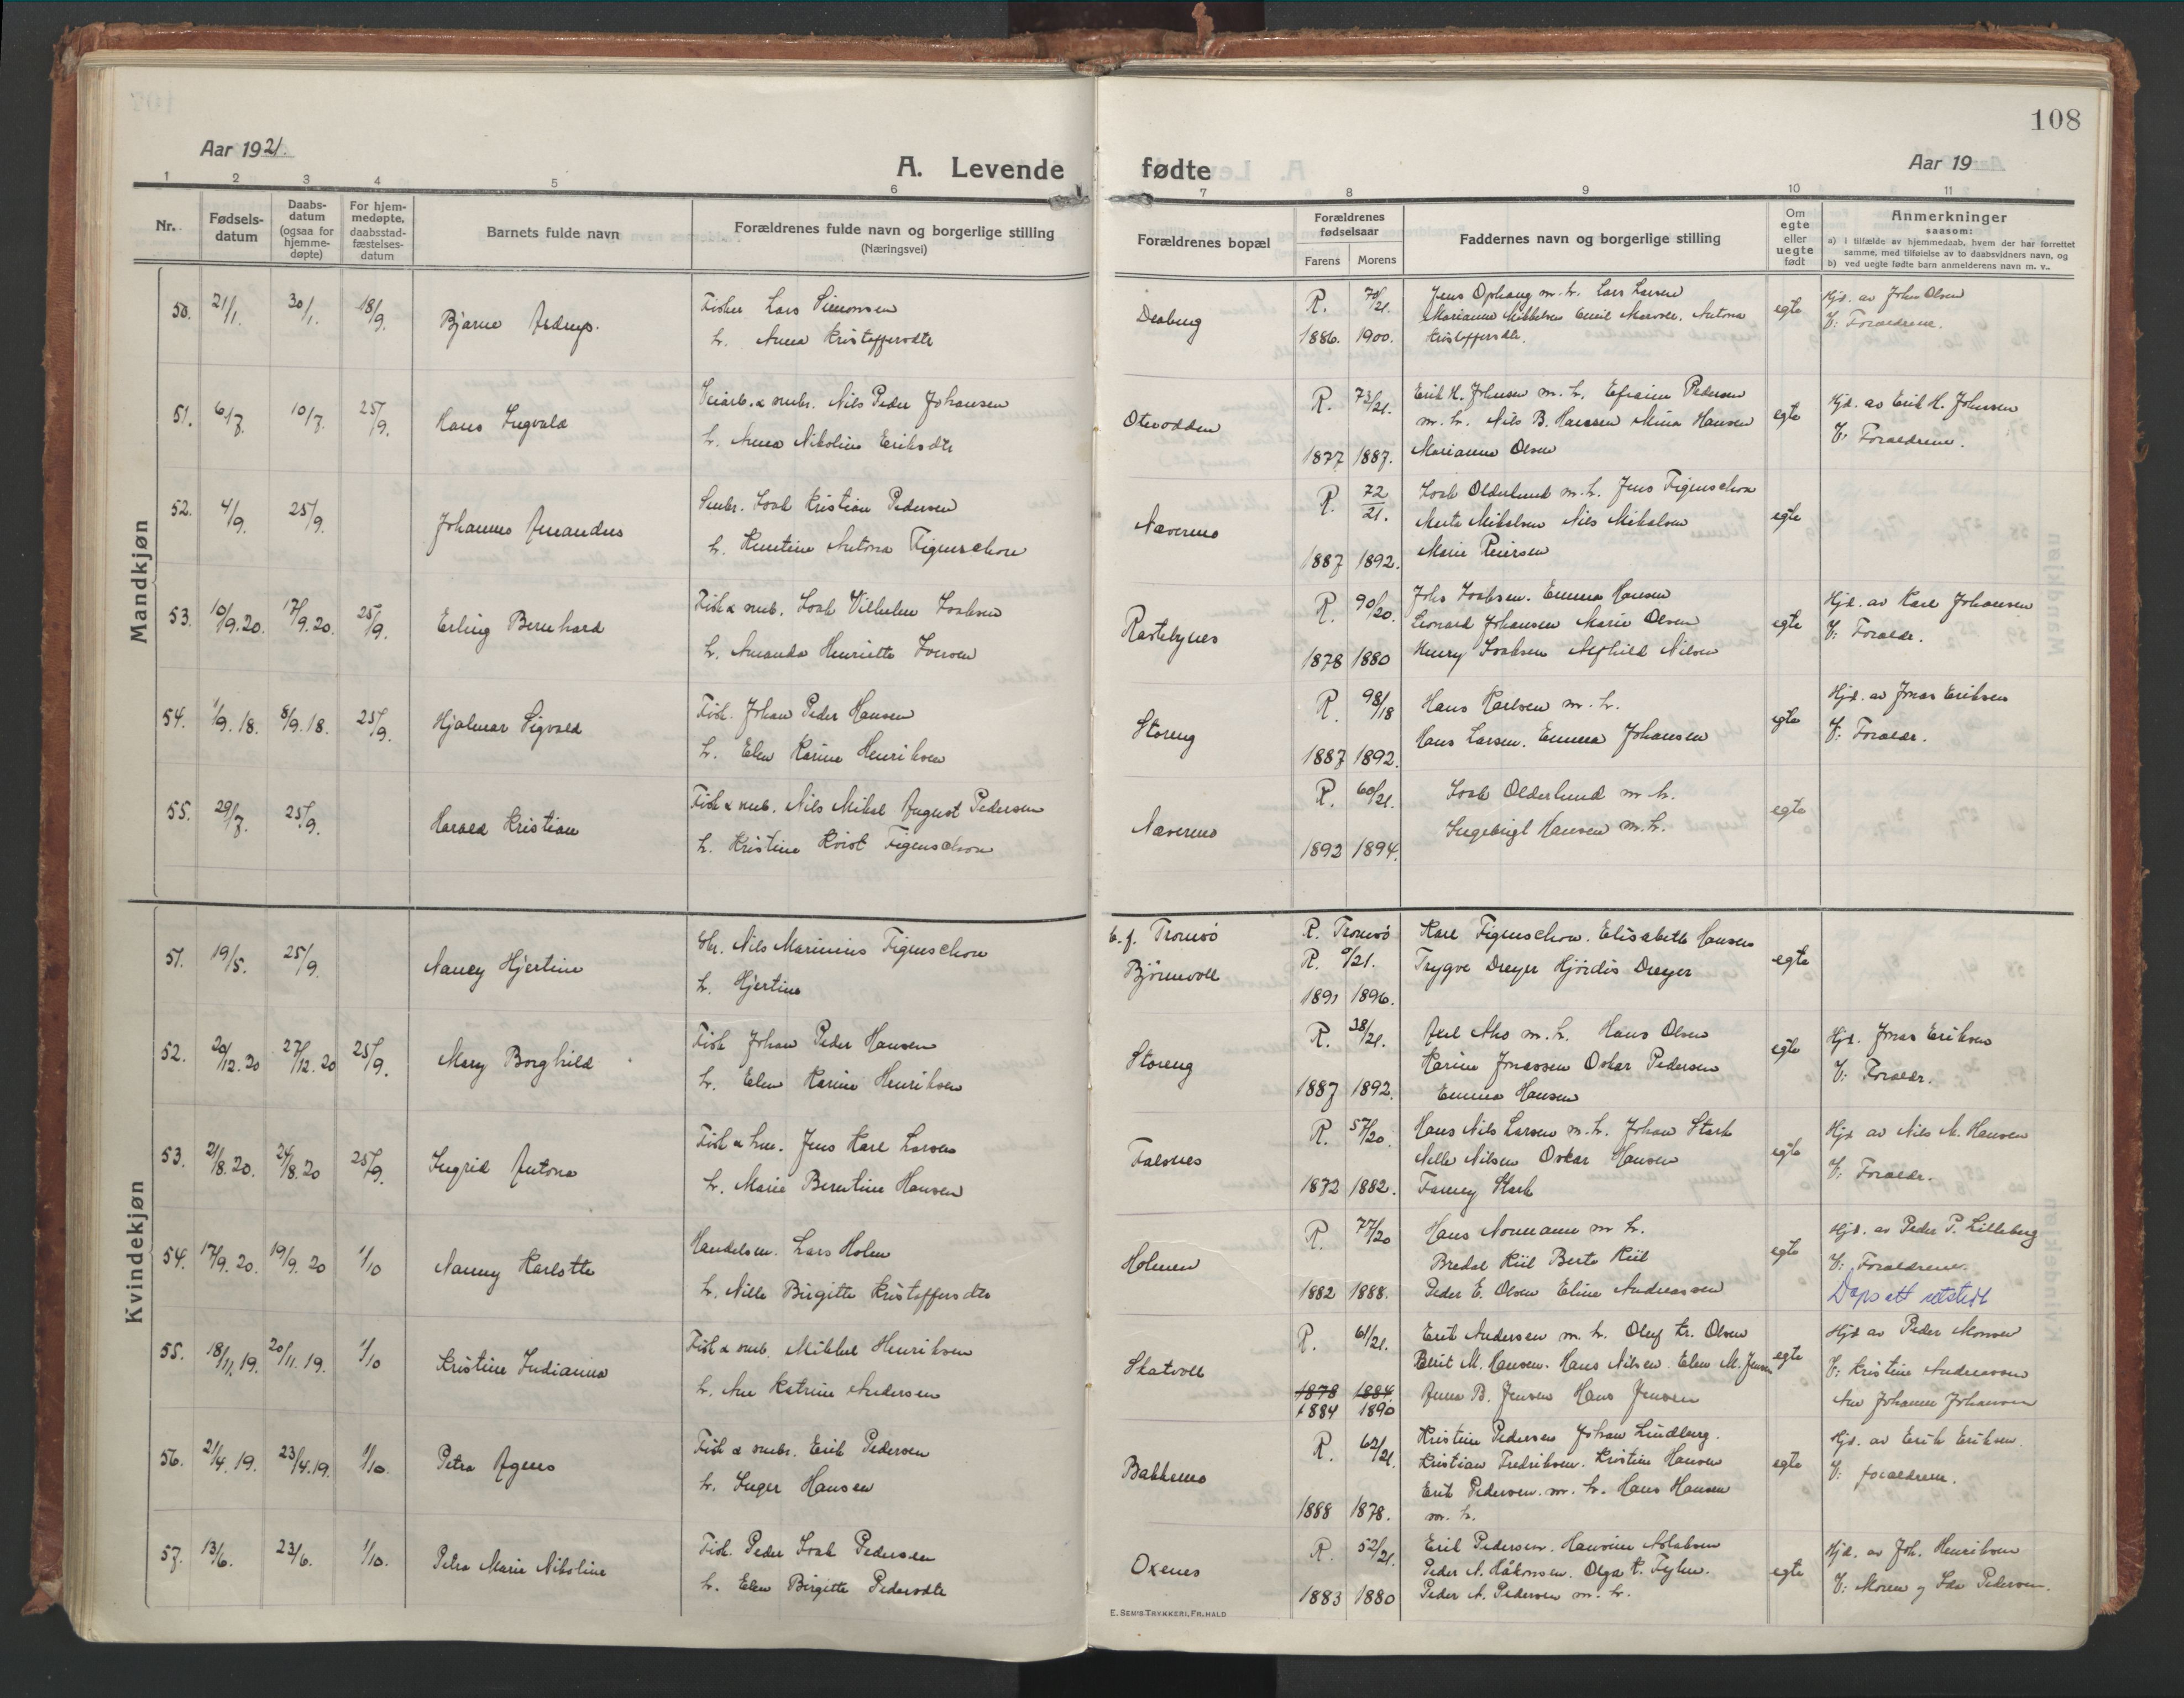 108
Aar 1921.
A. Levende fødte
Aar 19
1 2 3 4 5 6 7 8 9 10 11
Nr.
Fødselsdatum
Daabsdatum (ogsaa for hjemmedøpte)
For hjemmedøpte, daabsstadfæstelsesdatum
Barnets fulde navn
Forældrenes fulde navn og borgerlige stilling
(Næringsvei)
Forældrenes bopæl
Forældrenes fødselsaar
Farens Morens
Faddernes navn og borgerlige stilling
Om egte eller uegte født
Anmerkninger
saasom:
a) i tilfælde av hjemmedaab, hvem der har forrettet samme, med tilføielse av to daabsvidners navn, og
b) ved uegte fødte barn anmelderens navn m. v..
Mandkjøn
50. 21/1. 30/1. 18/9. Bjarne
Fisker Lars Simonsen
h. Anna Kristoffersdtr
R. 70/21.
1886. 1900.
Jens Ophaug m. h. Lars Larsen
Marianne Mikkelsen Emil Antona
Kristoffersdtr.
egte
Hjd. av Johan Olsen
V: Forældrene.
51. 6/7 10/7. 25/9. Hans Ingvald
Nils Peder Johansen
h. Anna Nikoline Eriksdtr
Oterodden
R. 73/21.
1877 1887.
Erik H. Johnsen m. h. Efraim Pedersen
m. h. Nils B. Hansen Mina Hansen
Marianne Olsen
egte
Hjd. av Erik H. Johnsen
V: Forældrene.
52. 4/9. 25/9. Johannes Amandus
Smbr. Isak Kristian Pedersen
h. Antona Figenschou
R. 72/21.
1887 1892.
Isak Olderlund m. h. Jens Figenschou
Mikalsen Nils Mikalsen
Marie Peiersen
egte
53. 10/9.20. 17/9.20. 25/9. Erling Bernhard
Fisk & smb. Isak Vilhelm Isaksen
h. Amanda Henriette Iversen
Rastebynes
R. 90/20.
1878 1880
Johs Isaksen. Emma Hansen
Leonard Johansen Marie Olsen
Henry Isaksen Alfhild Nilsen
egte
Hjd. av Karl Johansen
V: Forældr.
54. 1/9.18. 8/9.18. 25/9. Hjalmar Sigvald
Fisk. Johan Peder Hansen
h. Elen Karine Henriksen
Storeng
R 98/18
1887 1892.
Hans Karlsen m. h.
Hans Larsen. Emma Johansen
egte
Hjd. av Jonas Eriksen
V: Forældr.
55. 29/7. 25/9. Harald Kristian
Fisk & smb. Nils Mikal August Pedersen
h. Kristine Figenschou
R. 60/21.
1892 1894.
Isak Olderlund m h.
Hansen m. h.
egte
Kvindekjøn
51. 19/5. 25/9. Nancy Hjertine
Nils Marinius Figenschou
h. Hjertine
b. f. Tromsø
Bjørnevoll
R. Tromsø
R. 9/21.
1891 1896.
Karl Figenschou. Elisabeth Hansen
Trygve Dreyer Hjördis Dreyer
egte
52. 20/12.20 27/12.20 25/9. Mary Borghild
Fisk Johan Peder Hansen
h. Elen Karine Henriksen
Storeng
R. 38/21.
1887 1892.
m. h. Hans Olsen
Karine Jonassen Oskar Pedersen
Emma Hansen
egte
Hjd. Jonas Eriksen
V: Forældr.
53. 21/8.20. 24/8.20 25/9. Ingrid Antona
Jens Karl Larsen
h. Marie Berntine Hansen
Falsnes
R. 57/20.
1872 1882.
Hans Nils Larsen m. h. Johan Stark
Nelle Nilsen Oskar Hansen
Fanny Stark
egte
Hjd av Nils M. Hansen
V: Forældr.
54. 17/9.20. 19/9.20 1/10 Nanny Karlotte
Handelsm. Lars Holm
h. Nille Birgitte Kristoffersdtr
Holmen
R. 77/20
1882 1888.
Hans Normann m h.
Bredal Kiil Berta Kiil
Peder E. Olsen Eline Andreassen
egte
Hjd. av Peder P. Lilleberg
V: Forældrene.
Daps att utstedt
55. 18/11.19. 20/11.19. 1/10 Kristine Indianna
Fisk & smb. Mikkel Henriksen
h. Ane Katrine Andersen
Skatvoll
R. 61/21.
1878 1884.
1884 1890
Erik Andersen m. h. Oluf Kr. Olsen
Berit M. Hansen. Hans Nilsen. Elen M. Jensen
Anna B. Jensen Hans Jensen
egte
Hjd av Peder Monsen
V: Kristine Andreassen
Ane Johanne Johansen
56. 21/4.19. 23/4.19. 1/10. Petra Agnes
Fisk & smbr. Erik Pedersen
h. Inger Hansen
Bakkemo
R. 62/21.
1888 1878.
Kristine Pedersen Johan Lindberg.
Kristian Fredriksen. Kristine Hansen
Erik Pedersen. m. h. Hans Hansen
m. h.
egte
Hjd. av Erik Eriksen.
V: forældrene.
57. 13/6. 23/6. 1/10. Petra Marie Nikoline
Fisk. Peder Isak Pedersen
h. Elen Birgitte Pedersdtr
Oxenes
R. 52/21.
1883 1880
Erik Pedersen. Hansine Aslaksen
Peder A. Håkonsen. Olga
Peder A. Pedersen m. h.
egte
Hjd. av Joh. Henriksen
V: Moren og Ida Pedersen.
E. SEM'S TRYKKERI, FR.HALD